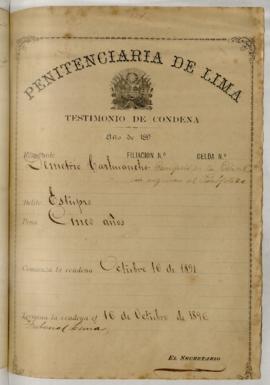 PENITENCIARIA DE LIMA
TESTIMONIO DE CONDENA
Año de 189
FILIACION N.º CELDA N.º
Demetrio Carhuancho
Delito Estupro
Pena Cinco años
Comienza la condena Octubre 16 de 1891
Termina la condena el 16 de Octubre de 1896
Tribunal Lima
EL SECRETARIO